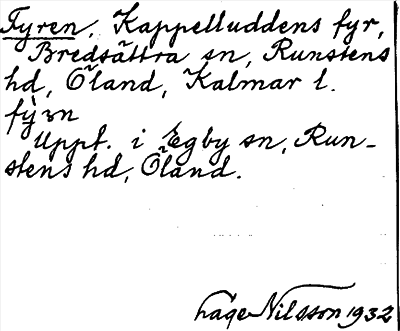 Fyren, Kappelluddens fyr,
Bredsättra sn, Runstens
hd, Öland, Kalmar l.
fy̆rn
Uppt. i Egby sn, Run-
stens hd, Öland.
Hage Nilsson 1932